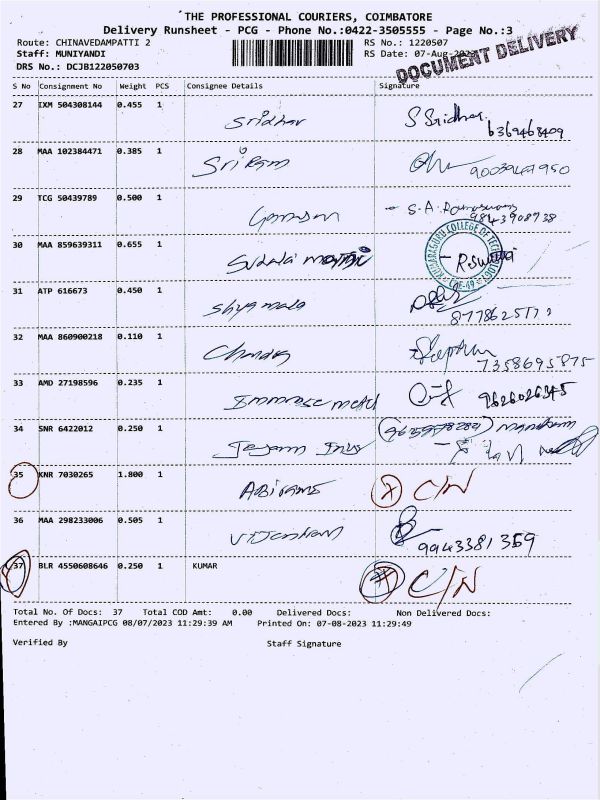 THE PROFESSIONAL COURIERS, COIMBATORE
Delivery Runsheet - PCG - Phone No.:0422-3505555 - Page No.:3
Route: CHINAVEDAMPATTI 2 RS No.: 1220507
Staff: MUNIYANDI RS Date: 07-Aug-2023
DOCUMENT DELIVERY
DRS No.: DCJB122050703
S No Consignment No Weight PCS Consignee Details Signature
27 IXM 504308144 0.455 1 Sridhar S Sridhar
6369468409
28 MAA 102384471 0.385 1 Sriram
29 TCG 50439789 0.500 1 S.A.
9843908738
30 MAA 859639311 0.655 1
KUMARAGURU COLLEGE OF TECHNOLOGY
31 ATP 616673 0.450 1 Shyamala
32 MAA 860900218 0.110 1
7358695875
33 AMD 27198596 0.235 1
9626026345
34 SNR 6422012 0.250 1
35 KNR 7030265 1.800 1 C/N
36 MAA 298233006 0.505 1
9943381359
37 BLR 4550608646 0.250 1 KUMAR C/N
Total No. Of Docs: 37 Total COD Amt: 0.00 Delivered Docs: Non Delivered Docs:
Entered By :MANGAIPCG 08/07/2023 11:29:39 AM Printed On: 07-08-2023 11:29:49
Verified By Staff Signature